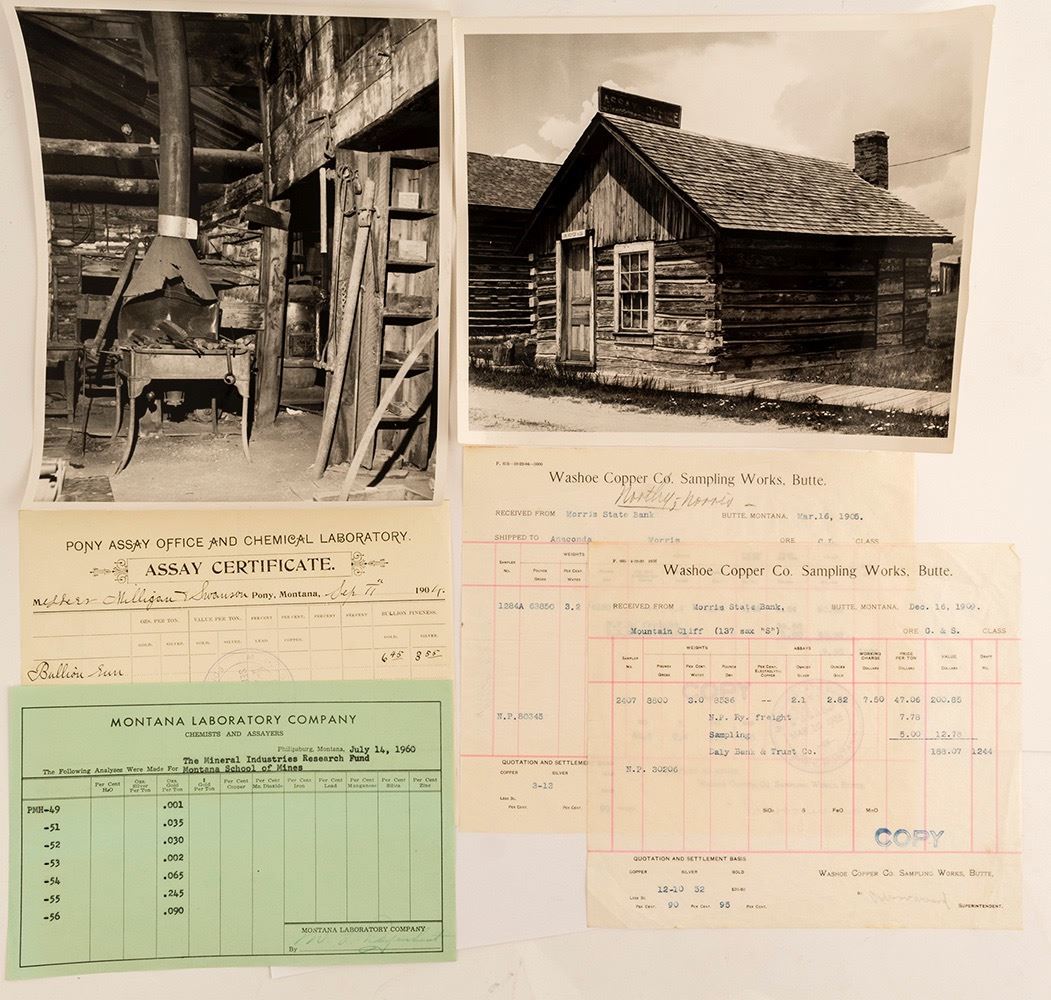 ASSAY OFFICE
P. 615
Washoe Copper Co. Sampling Works, Butte.
Northy & Norris
RECEIVED FROM Morris State Bank BUTTE, MONTANA, Mar.16, 1905.
SHIPPED TO Anaconda Morris ORE CLASS
WEIGHTS
SAMPLER No. POUNDS GROSS PER CENT. WATER
1284A 63850 3.2
N.P.80345
QUOTATION AND SETTLEMENT
COPPER SILVER
3-13
LESS Sc.
PER CENT. PER CENT.
Washoe Copper Co. Sampling Works, Butte.
RECEIVED FROM Morris State Bank, BUTTE, MONTANA, Dec. 16, 1909.
Mountain Cliff (137 sax "S") ORE G. & S. CLASS
WEIGHTS ASSAYS WORKING CHARGE PRICE PER TON VALUE DRAFT
SAMPLER No. POUNDS GROSS PER CENT. WATER POUNDS DRY PER CENT. ELECTROLYTIC COPPER OUNCES SILVER OUNCES GOLD DOLLARS DOLLARS DOLLARS No.
2407 8800 3.0 8536 -- 2.1 2.82 7.50 47.06 200.85
N.P. Ry. freight 7.78
Sampling 5.00 12.78
Daly Bank & Trust Co. 188.07 1244
N.P. 30206
SiO2 S FeO MnO
COPY
QUOTATION AND SETTLEMENT BASIS
COPPER SILVER GOLD
WASHOE COPPER CO. SAMPLING WORKS, BUTTE,
12-10 52 $20.00
LESS Sc. By
90 95 SUPERINTENDENT.
PER CENT. PER CENT. PER CENT.
PONY ASSAY OFFICE AND CHEMICAL LABORATORY.
ASSAY CERTIFICATE.
Messrs Milligan & Swanson Pony, Montana, Sep 11th 190
OZS. PER TON. VALUE PER TON. PERCENT PERCENT PERCENT PERCENT BULLION FINENESS.
GOLD. SILVER. GOLD. SILVER. LEAD. COPPER. GOLD. SILVER.
645 355
Bullion
MONTANA LABORATORY COMPANY
CHEMISTS AND ASSAYERS
Philipsburg, Montana, July 14, 1960
The Mineral Industries Research Fund
The Following Analyses Were Made For Montana School of Mines
Per Cent H2O Ozs. Silver Per Ton Ozs. Gold Per Ton $ Gold Per Ton Per Cent Copper Per Cent Mn. Dioxide Per Cent Iron Per Cent Lead Per Cent Manganese Per Cent Silica Per Cent Zinc
PMH-49 .001
-51 .035
-52 .030
-53 .002
-54 .065
-55 .245
-56 .090
MONTANA LABORATORY COMPANY
By